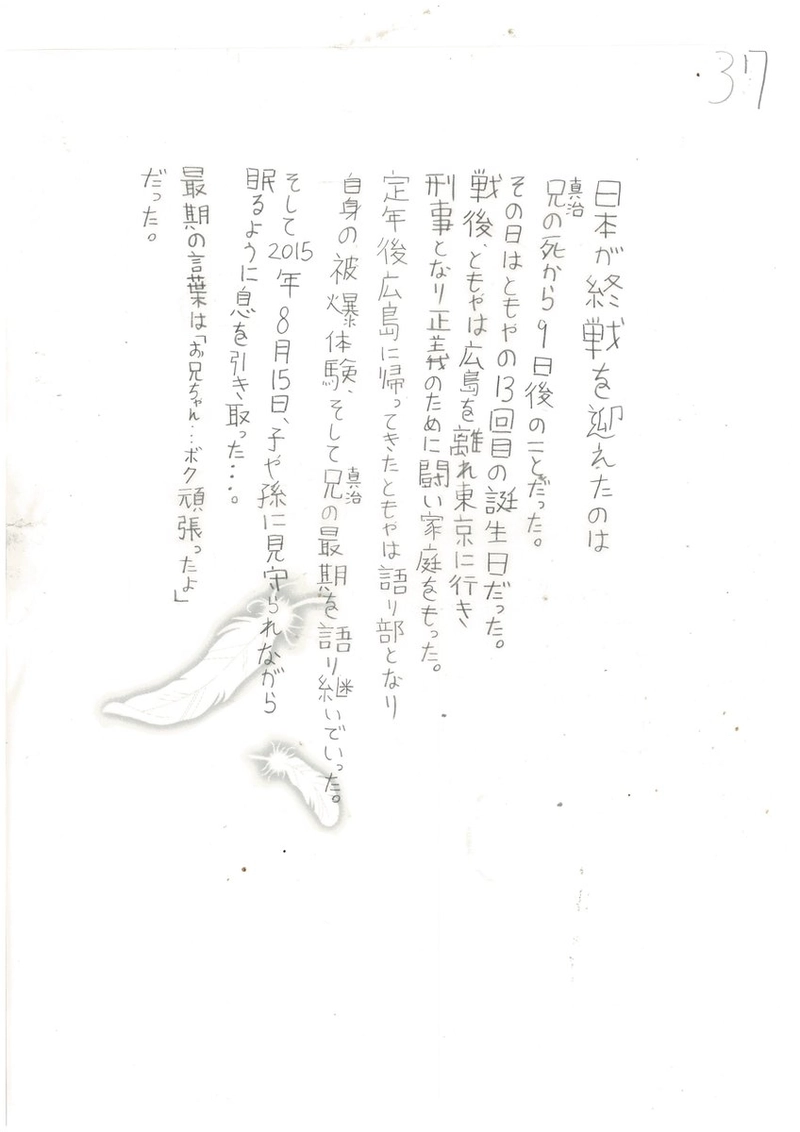 37
日本が終戦を迎えたのは
真治
兄の死から9日後のことだった。
その日はともやの13回目の誕生日だった。
戦後、ともやは広島を離れ東京に行き
刑事となり正義のために闘い家庭をもった。
定年後広島に帰ってきたともやは語り部となり
自身の被爆体験、そして兄の最期を語り継いでいった。
真治
そして2015年8月15日、子や孫に見守られながら
眠るように息を引き取った…。
最期の言葉は「お兄ちゃん…ボク頑張ったよ」
だった。